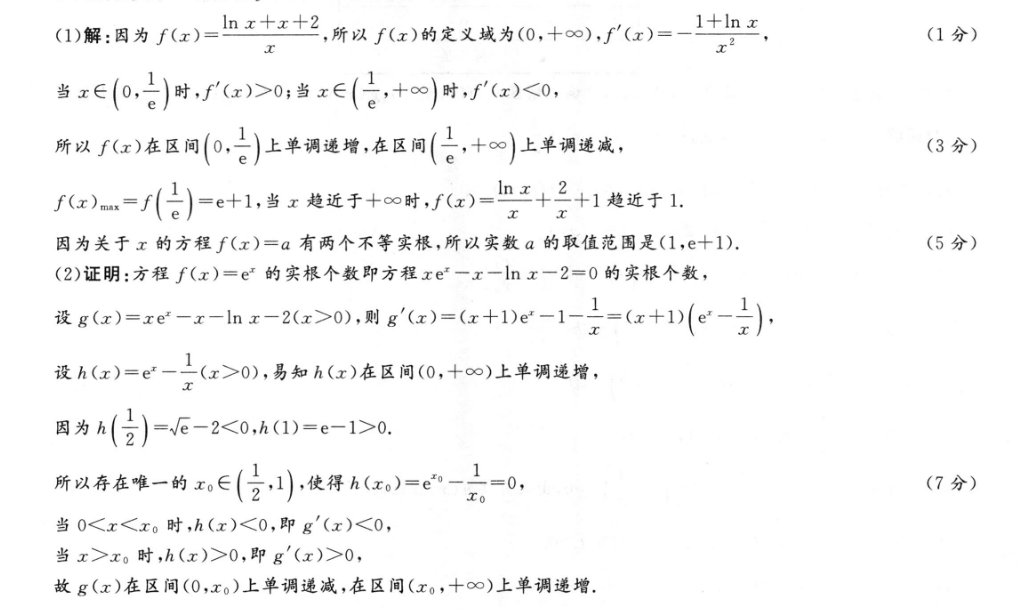 (1)解:因为 f(x)=\frac{ln x+x+2}{x},所以 f(x)的定义域为(0,+∞),f′(x)=-\frac{1+ln x}{x^2}, (1分)
当 x∈(0,\frac{1}{e})时,f′(x)>0;当 x∈(\frac{1}{e},+∞)时,f′(x)<0,
所以 f(x)在区间(0,\frac{1}{e})上单调递增,在区间(\frac{1}{e},+∞)上单调递减, (3分)
f(x)_{max}=f(\frac{1}{e})=e+1,当 x 趋近于+∞时,f(x)=\frac{ln x}{x}+\frac{2}{x}+1 趋近于 1.
因为关于 x 的方程 f(x)=a 有两个不等实根,所以实数 a 的取值范围是(1,e+1). (5分)
(2)证明:方程 f(x)=e^x 的实根个数即方程 xe^x-x-ln x-2=0 的实根个数,
设 g(x)=xe^x-x-ln x-2(x>0),则 g′(x)=(x+1)e^x-1-\frac{1}{x}=(x+1)(e^x-\frac{1}{x}),
设 h(x)=e^x-\frac{1}{x}(x>0),易知 h(x)在区间(0,+∞)上单调递增,
因为 h(\frac{1}{2})=√e-2<0,h(1)=e-1>0.
所以存在唯一的 x_0∈(\frac{1}{2},1),使得 h(x_0)=e^{x_0}-\frac{1}{x_0}=0, (7分)
当 0<x<x_0 时,h(x)<0,即 g′(x)<0,
当 x>x_0 时,h(x)>0,即 g′(x)>0,
故 g(x)在区间(0,x_0)上单调递减,在区间(x_0,+∞)上单调递增.